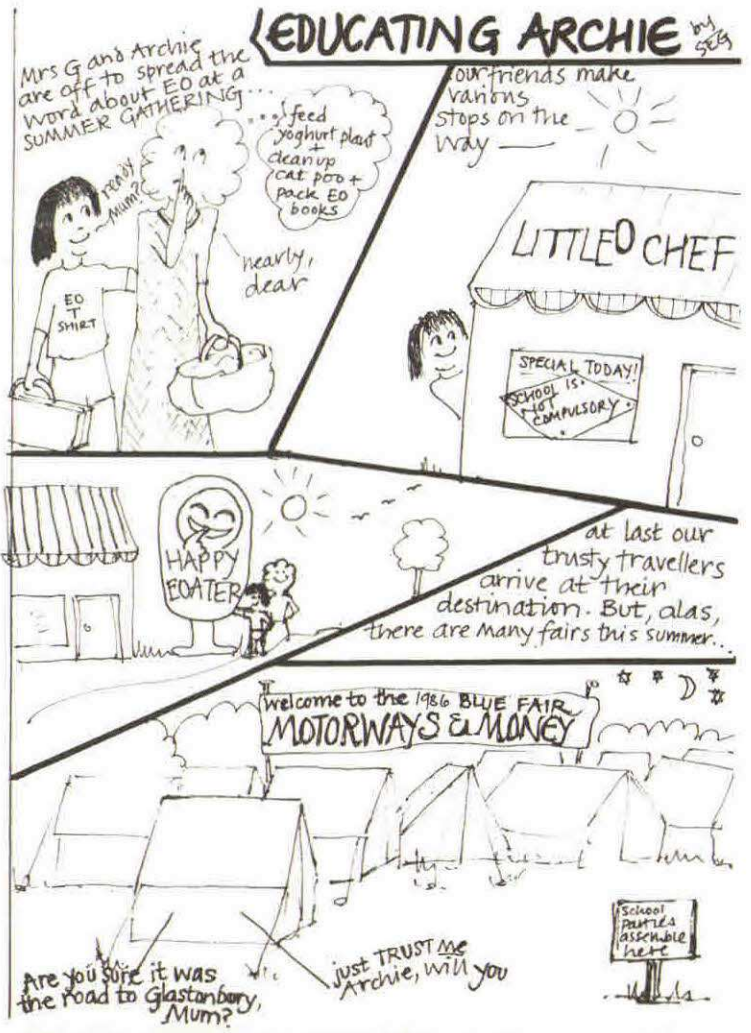 EDUCATING ARCHIE
by
SEG
Mrs G and Archie
are off to spread the
word about EO at a
SUMMER GATHERING...
ready
Mum?
... feed
yoghurt plant
+
clean up
cat poo +
pack EO
books
nearly,
dear
EO
T
SHIRT
our friends make
various
stops on the
way
LITTLE O CHEF
SPECIAL TODAY!
SCHOOL IS
NOT
COMPULSORY
HAPPY
EOATER
at last our
trusty travellers
arrive at their
destination. But, alas,
there are many fairs this summer...
welcome to the 1986 BLUE FAIR
MOTORWAYS & MONEY
School
parties
assemble
here
Are you sure it was
the road to Glastonbury,
Mum?
just TRUST me
Archie, will you